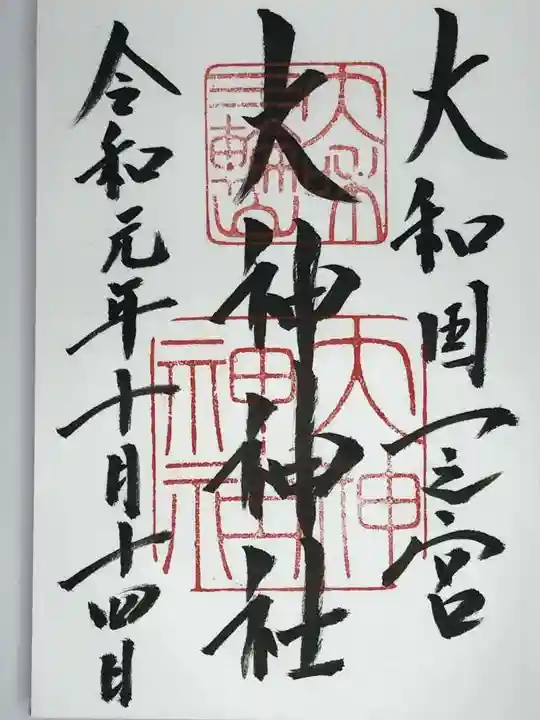 大和国一之宮
大神神社
令和元年十月十四日
大神神社